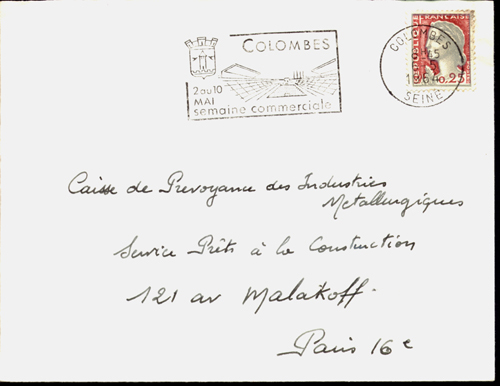 COLOMBES
2 au 10
MAI
semaine commerciale
REPUBLIQUE FRANCAISE
0,25
COLOMBES
1964
SEINE
Caisse de Prevoyance des Industries
Metallurgiques
Service Prêts à la Construction
121 av Malakoff.
Paris 16e